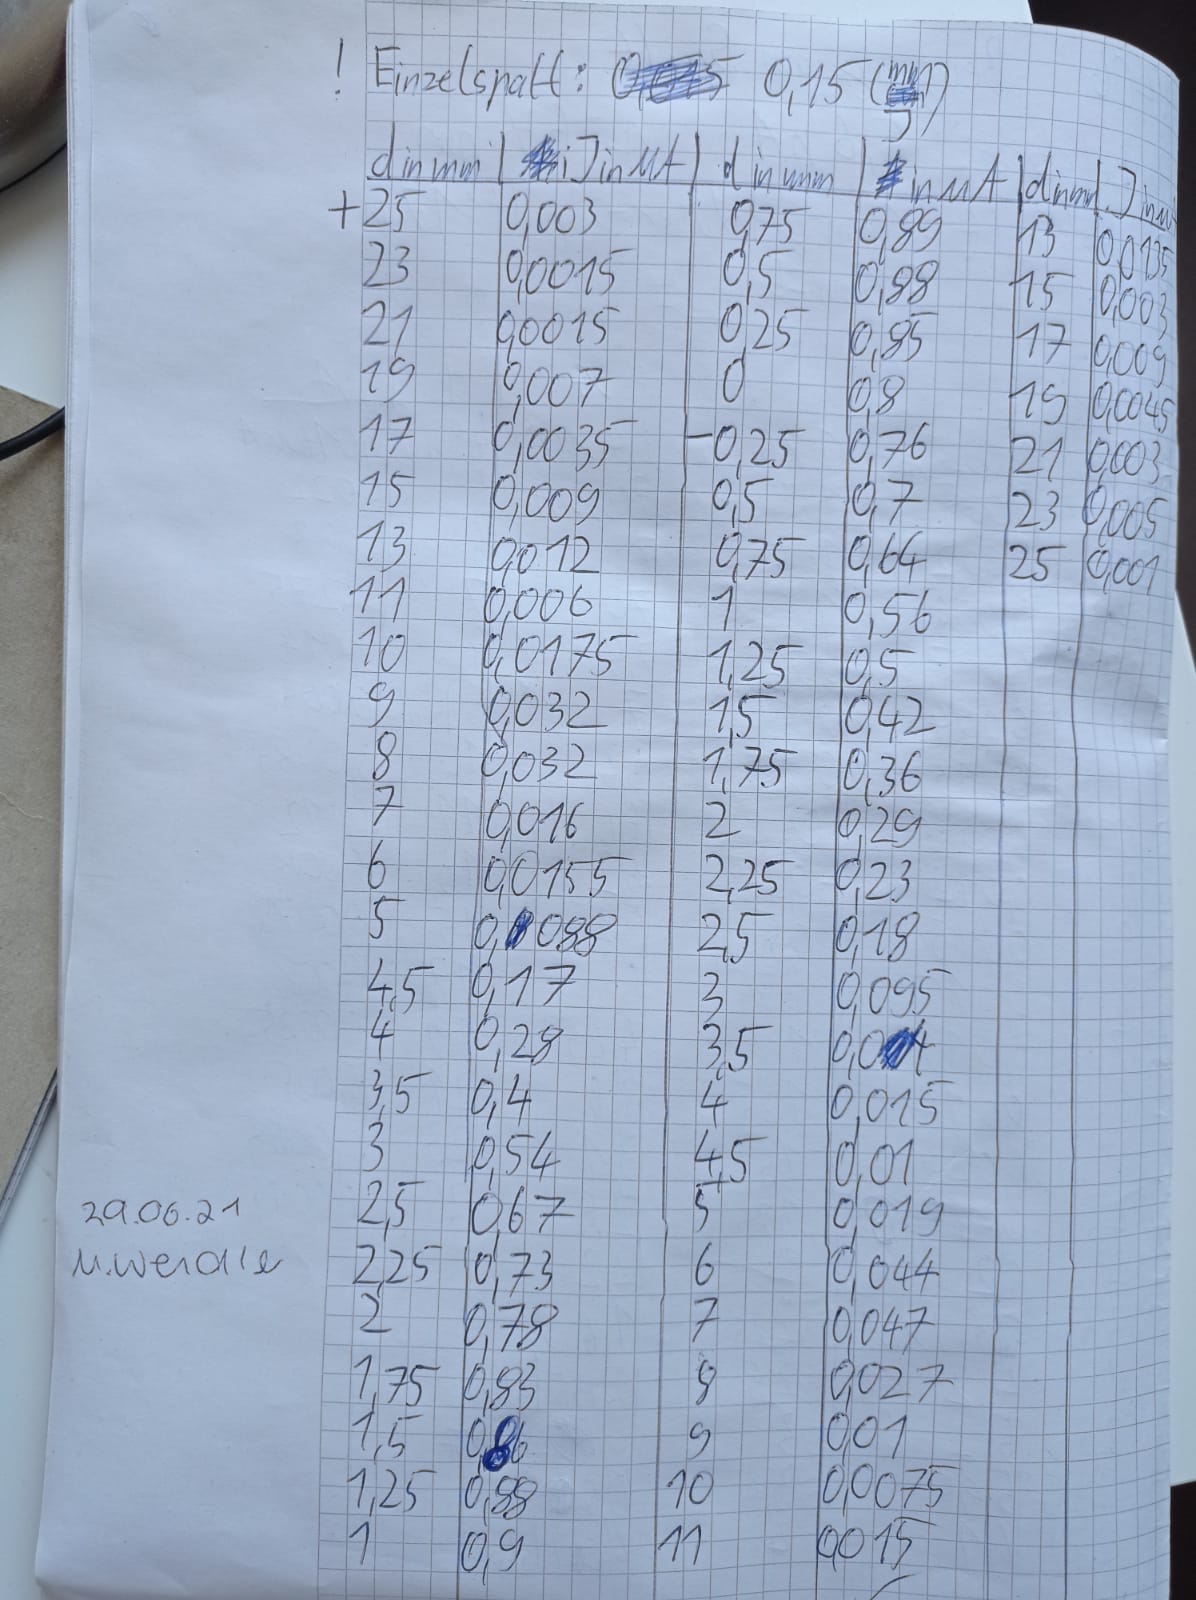 ! Einzelspalt: 0,15 (mm)
d in mm | I in µA | d in mm | I in µA | d in mm | I in µ
+25 0,003 0,75 0,89 13 0,0135
23 0,0015 0,5 0,88 15 0,003
21 0,0015 0,25 0,85 17 0,009
19 0,007 0 0,8 19 0,0045
17 0,0035 -0,25 0,76 21 0,003
15 0,009 0,5 0,7 23 0,005
13 0,012 0,75 0,64 25 0,001
11 0,006 1 0,56
10 0,0175 1,25 0,5
9 0,032 1,5 0,42
8 0,032 1,75 0,36
7 0,016 2 0,29
6 0,0155 2,25 0,23
5 0,088 2,5 0,18
4,5 0,17 3 0,095
4 0,28 3,5 0,04
3,5 0,4 4 0,015
3 0,54 4,5 0,01
2,5 0,67 5 0,019
2,25 0,73 6 0,044
2 0,78 7 0,047
1,75 0,83 8 0,027
1,5 0,86 9 0,01
1,25 0,88 10 0,0075
1 0,9 11 0,015
29.06.21